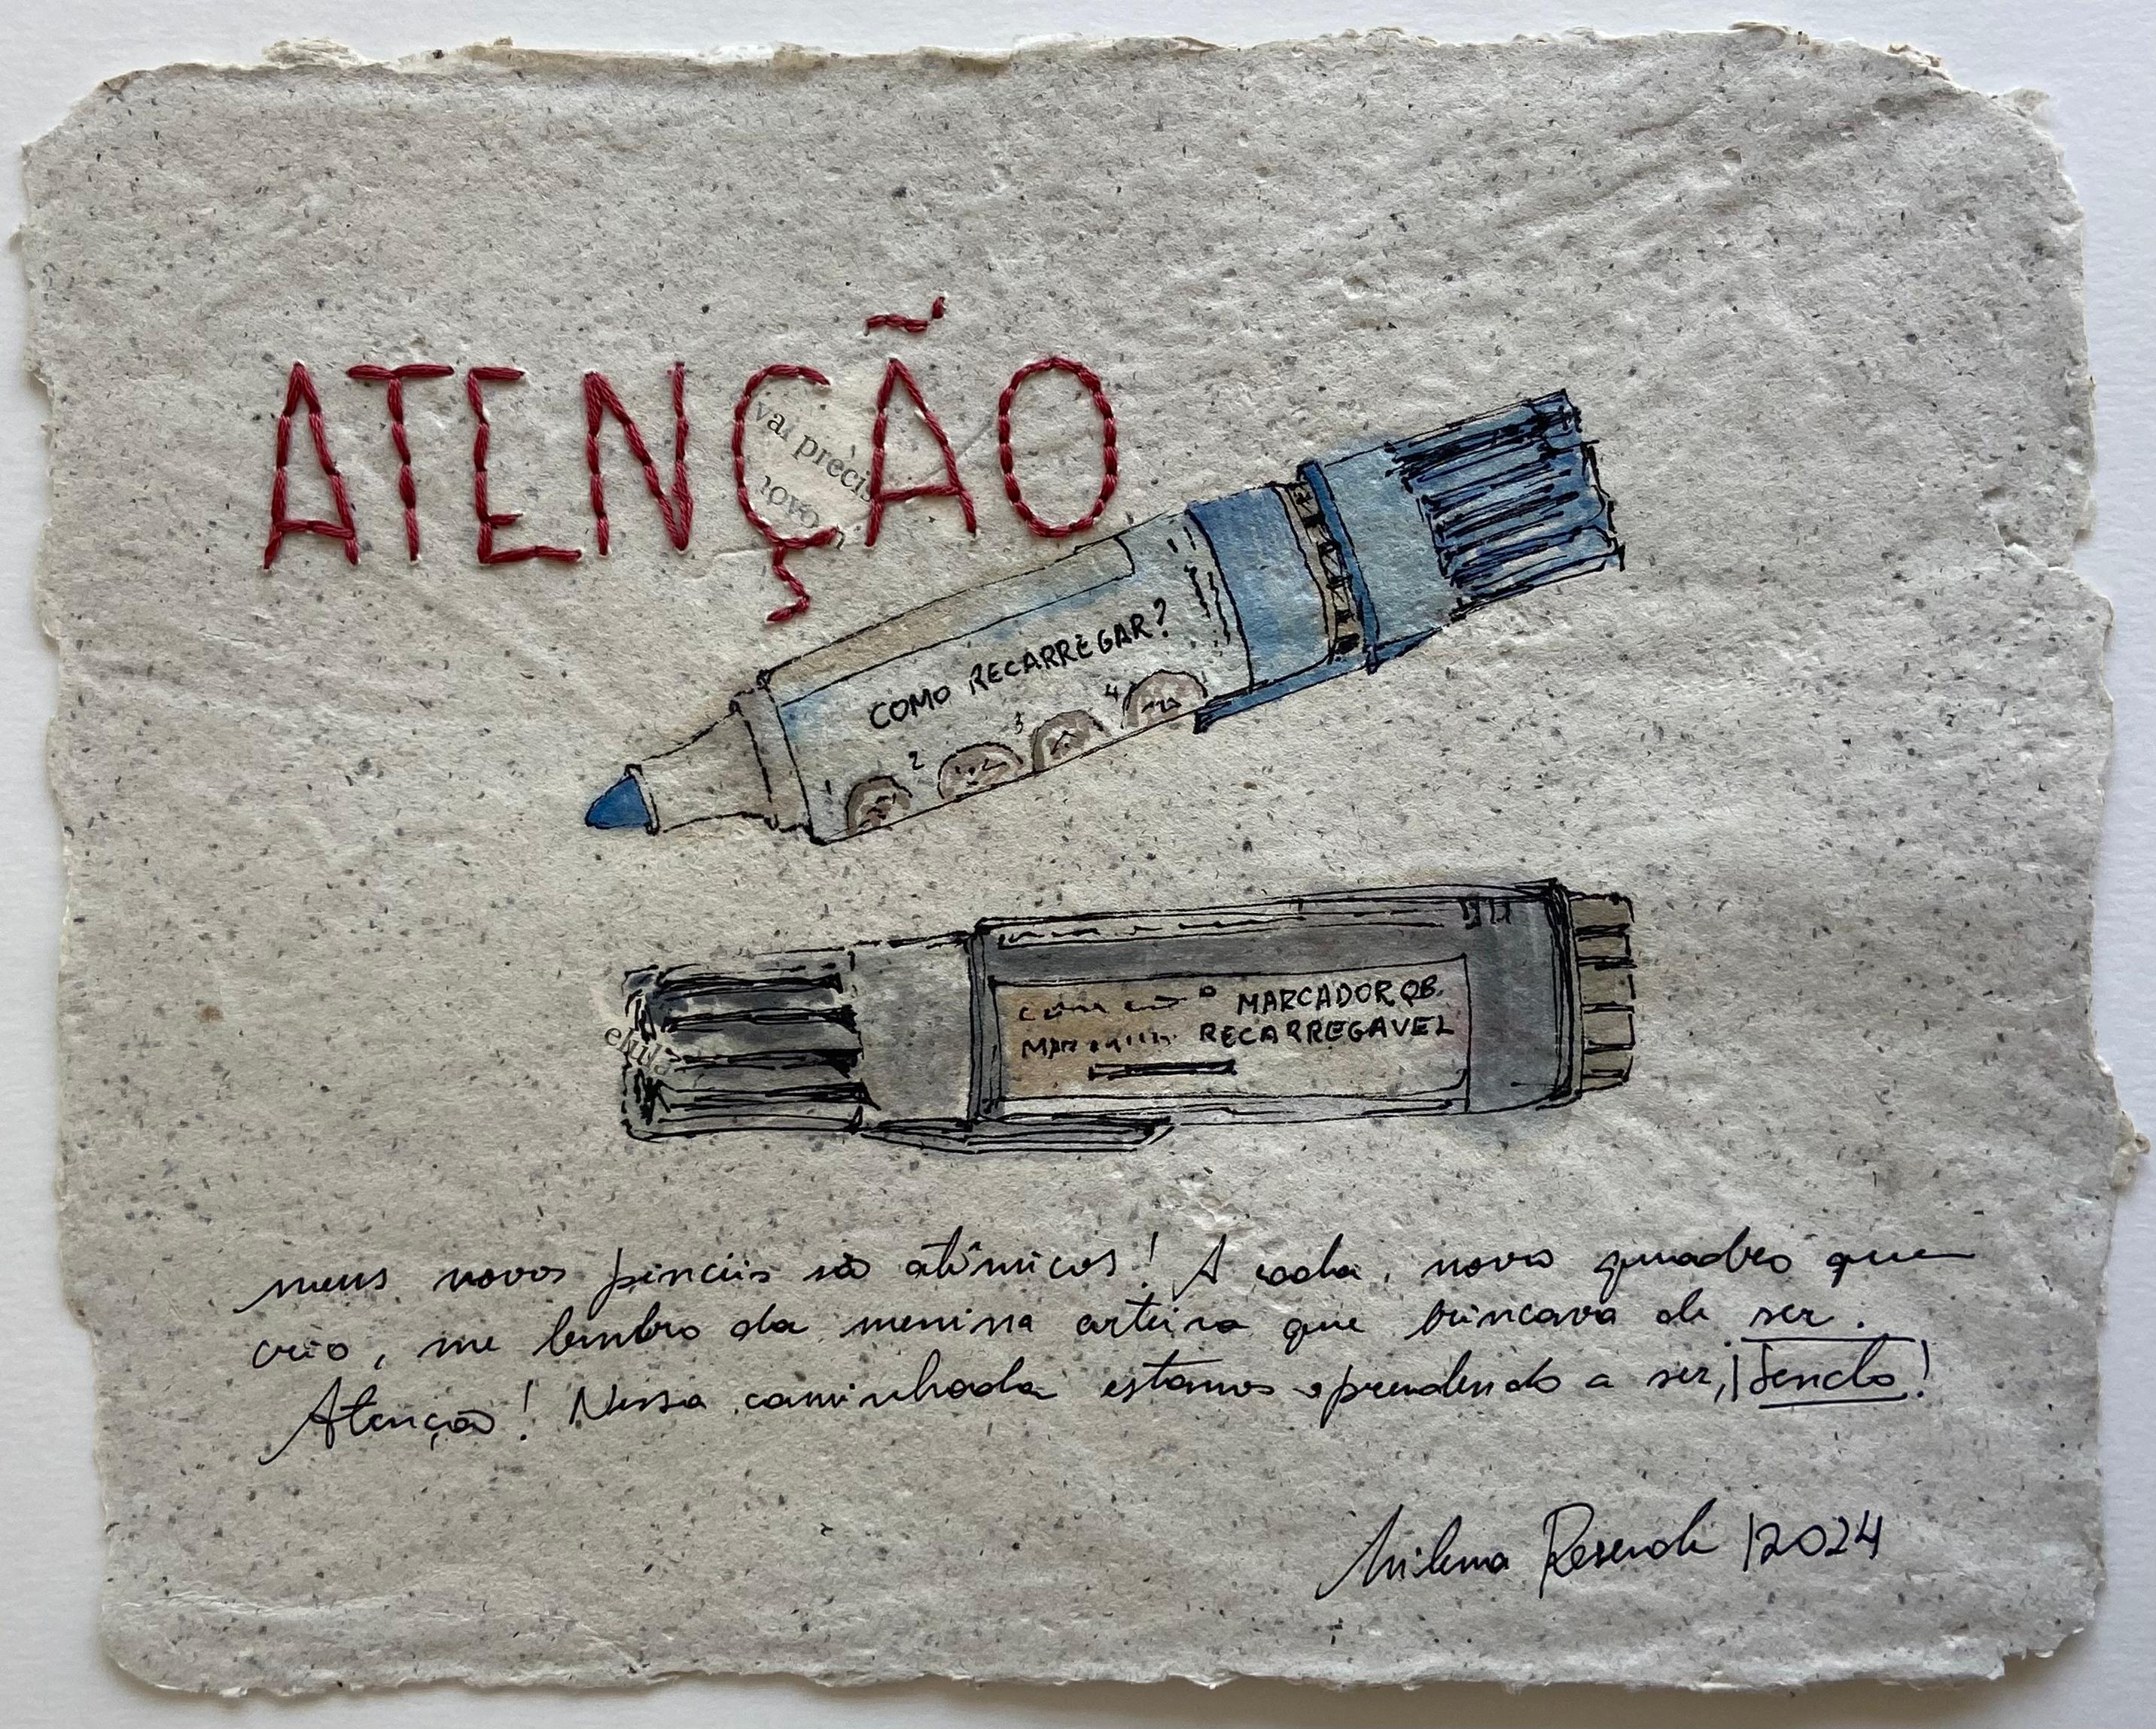 ATENÇÃO
va precis
novo
COMO RECARREGAR?
1 2 3 4
MARCADOR QB.
RECARREGAVEL
meus novos pinceis são atômicos! A cada, novo quadro que
crio, me lembro da menina arteira que brincava de ser.
Atenção! Nessa caminhada estamos aprendendo a ser, |Sendo!
Milena Resende |2024